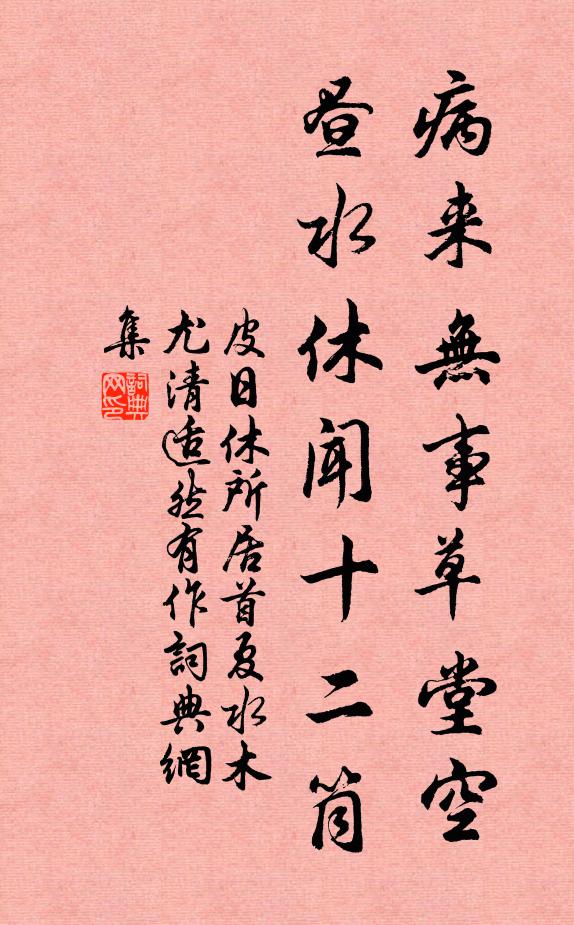 病来無事草堂空
昼水休闻十二筒
皮日休所居首夏水木
尤清适然有作詞典網
集
詞典网印